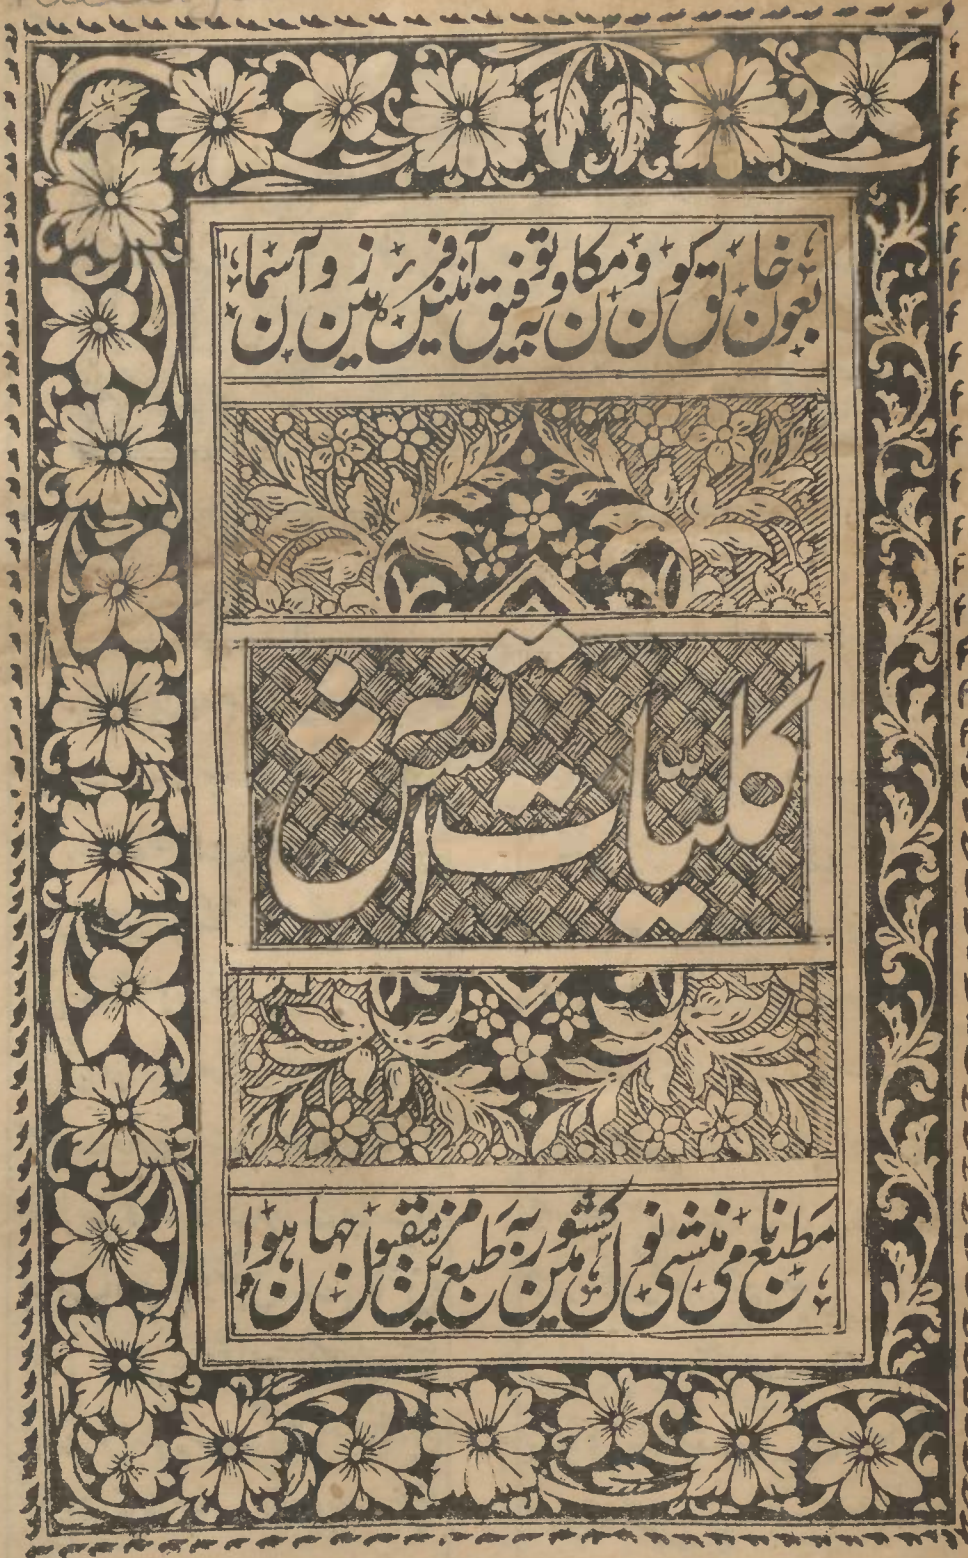 بعون خالق کون و مکان و بہ توفیق آفرینندہ زمین و آسمان
کلیّات آتش
مطبع نامی منشی نول کشور میں بہ طبع مزین مقبول جہان ہوا